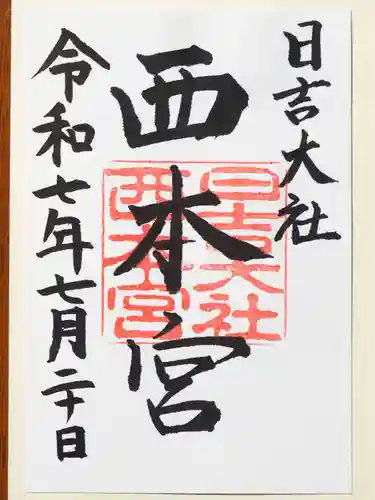 日吉大社
西本宮
日吉大社
西本宮
令和七年七月二十日